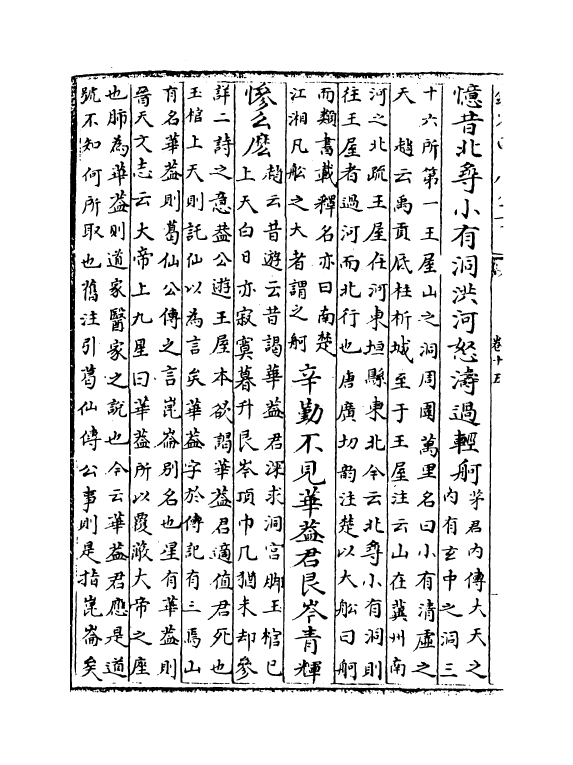 憶昔北尋小有洞洪河怒濤過輕舸
茅君内傳大天之
内有玄中之洞三
十六所第一王屋山之洞周圍萬里名曰小有清虚之
天 趙云禹貢底柱析城至于王屋注云山在冀州南
河之北疏王屋在河東垣縣東北今云北尋小有洞則
往王屋者過河而北行也唐廣切韵注楚以大船曰舸
而類書載釋名亦曰南楚
江湘凡船之大者謂之舸
辛勤不見華葢君艮岑青輝
慘么麽
趙云昔遊云昔謁華葢君深求洞宫脚玉棺已
上天白日亦寂寞暮升艮岑頂巾几猶未却參
詳二詩之意葢公遊王屋本欲謁華葢君適值君死也
玉棺上天則託仙以為言矣華葢字於傳記有三焉山
有名華葢則葛仙公傳之言崑崙別名也星有華葢則
晉天文志云大帝上九星曰華葢所以覆蔽大帝之座
也肺為華葢則道家醫家之說也今云華葢君應是道
號不知何所取也舊注引葛仙傳公事則是指崑崙矣
卷十五